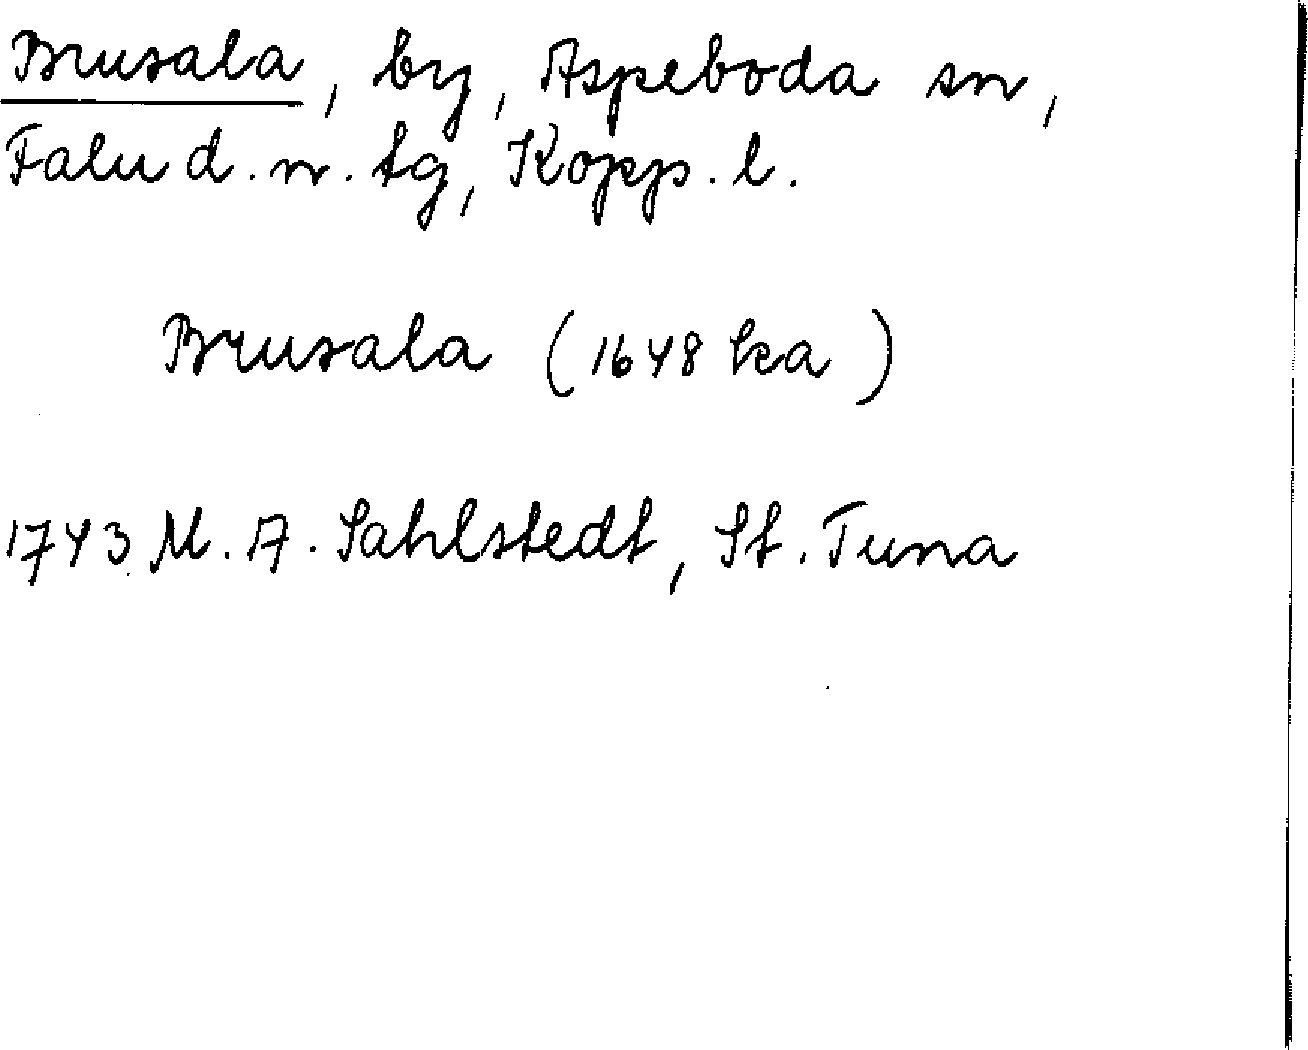 Brusala, by, Aspeboda sn,
Falu d. n. tg, Kopp. l.
Brusala (1648 ka)
1743 M. A. Sahlstedt, St. Tuna